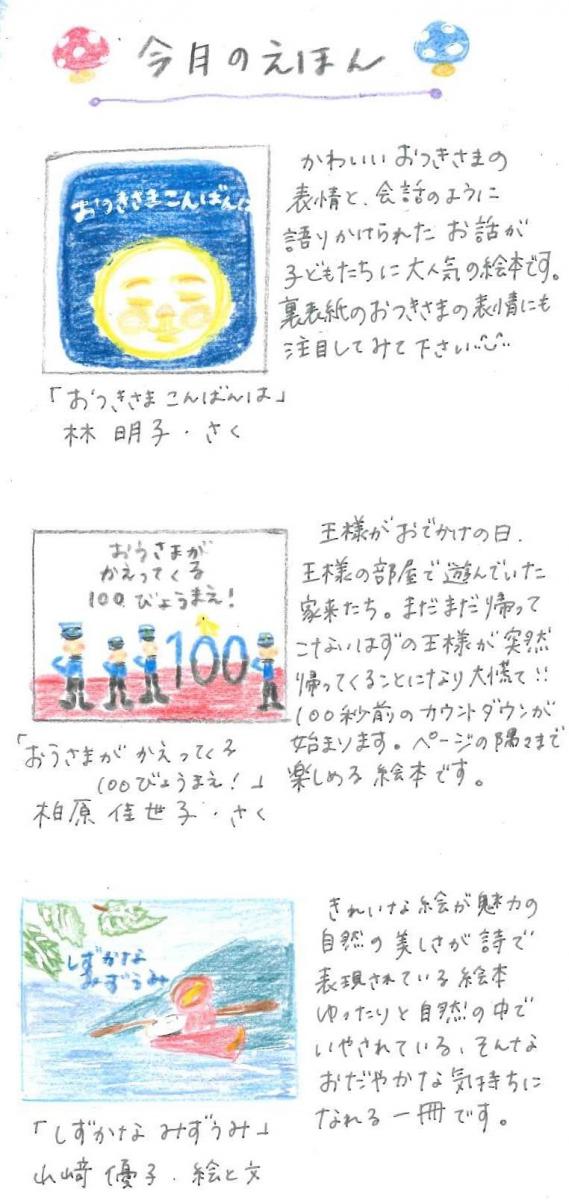 今月のえほん
おつきさまこんばんは
かわいいおつきさまの
表情と、会話のように
語りかけられたお話が
子どもたちに大人気の絵本です。
裏表紙のおつきさまの表情にも
注目してみて下さい
「おつきさまこんばんは」
林 明子・さく
おうさまが
かえってくる
100びょうまえ!
100
王様がおでかけの日、
王様の部屋で遊んでいた
家来たち。まだまだ帰って
こないはずの王様が突然
帰ってくることになり大慌て!!
100秒前のカウントダウンが
始まります。ページの隅々まで
楽しめる絵本です。
「おうさまが かえってくる
100びょうまえ!」
柏原 佳世子・さく
しずかな
みずうみ
きれいな絵が魅力の
自然の美しさが詩で
表現されている絵本
ゆったりと自然の中で
いやされている、そんな
おだやかな気持ちに
なれる一冊です。
「しずかな みずうみ」
山﨑 優子・絵と文